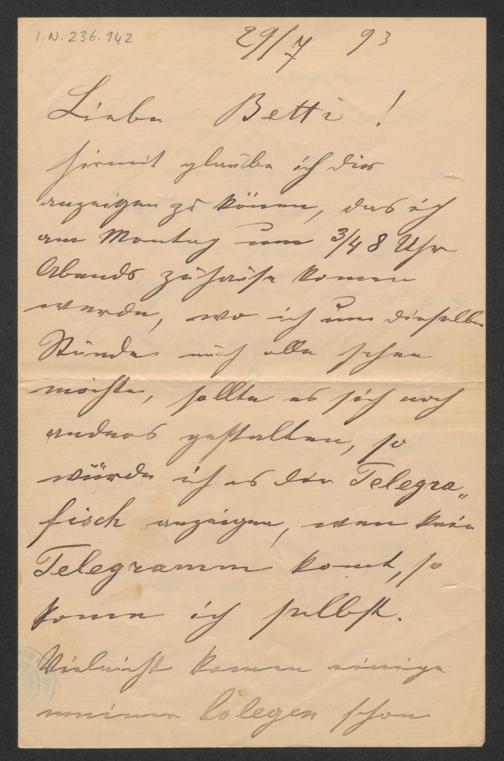 I.N. 236.142
29/7 93
Liebe Betti!
hiermit glaube ich dir
anzeigen zu könen, das ich
am Montag um 3/4 8 Uhr
Abends zuhause komen
werde, wo ich um dieselbe
Stunde euch alle sehen
möchte, sollte es sich noch
anders gestalten, so
würde ich es dir Telegra„
fisch anzeigen, wen kein
Telegramm komt, so
kome ich selbst.
Vieleicht komen einige
meiner Colegen schon